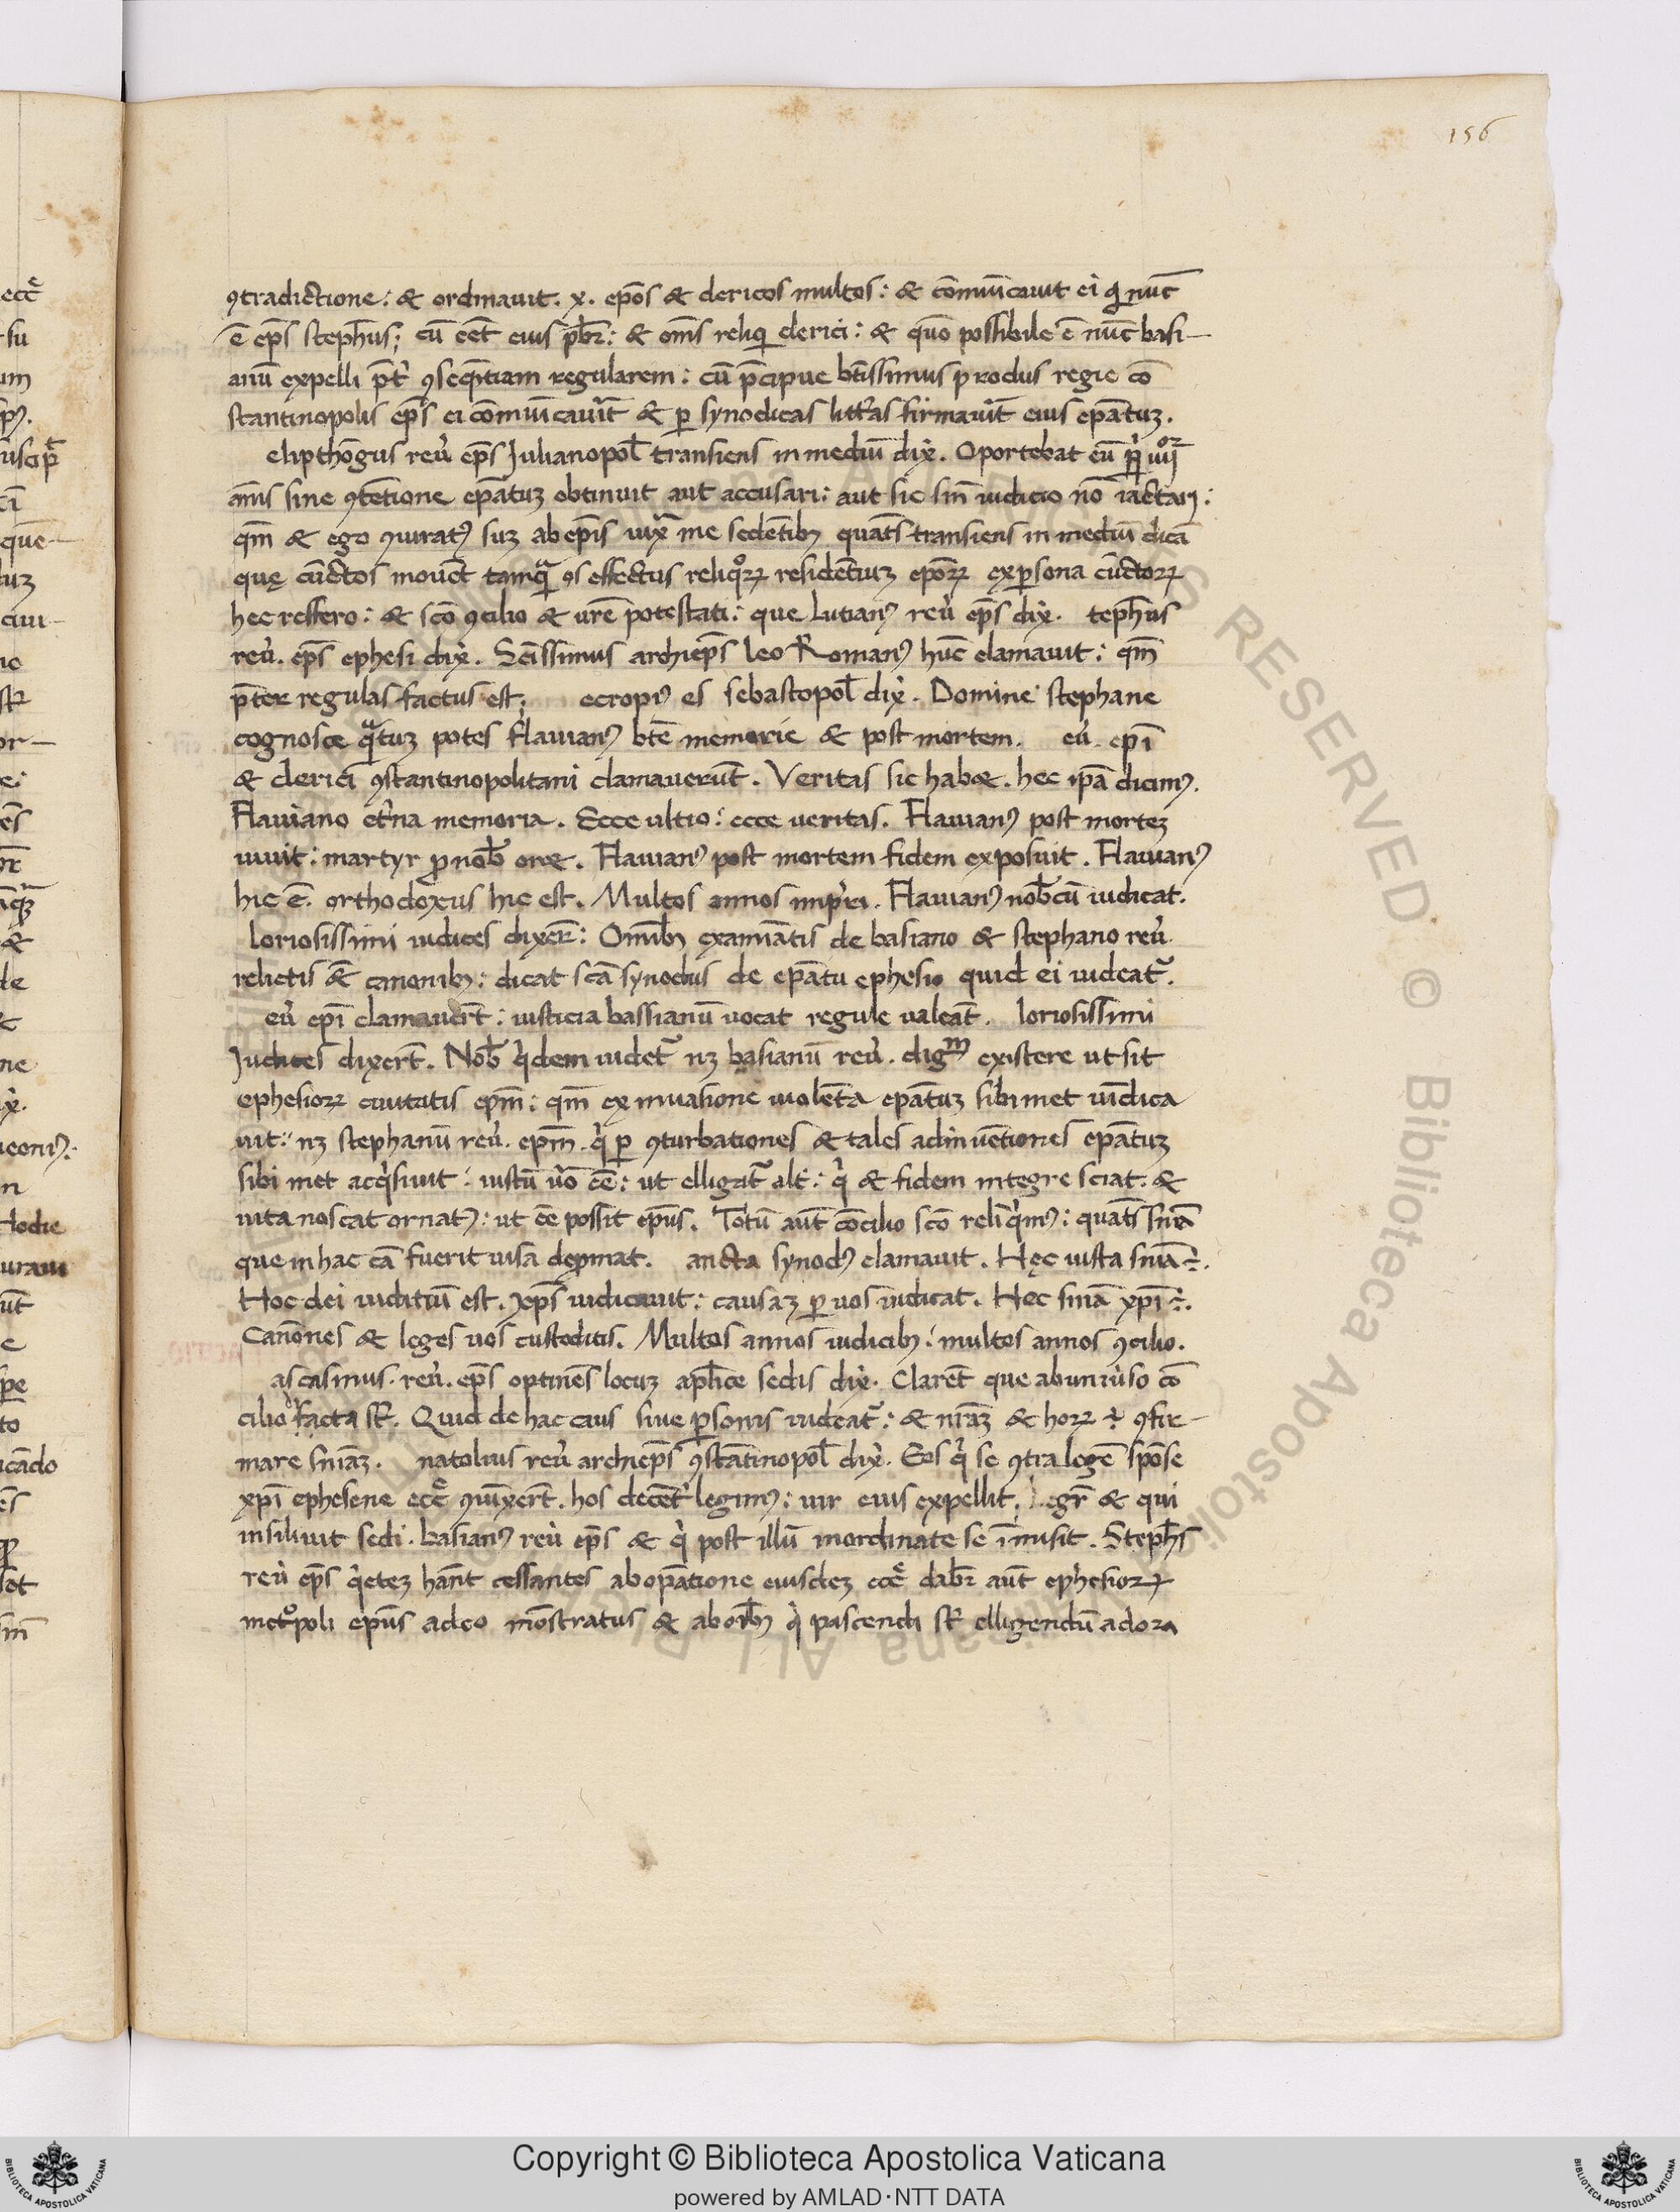 156
ꝯtradictione: & ordinauit. x. ep̄os & clericos multos: & com̄unicauit ei qi nūc
ē ep̄s steph̄us; cū eēt eius p̄br: & om̄s reliqi clerici: & quō possibile ē nūc basi-
anū expelli p̄t ꝯseq̄ntiam regularem: cū p̄cipue bt̄issimus proclus regie cō
stantinopolis ep̄s ei com̄unicauit & ꝑ synodicas litt̄as firmauit eius ep̄atuꝫ.
elipthōgus reu̇ ep̄s Julianopol̄ transiens in mediū diẋ. Oportebat eū
annis sine ꝯtētione ep̄atuꝫ obtinuit aut accusari: aut sic sin̄ iudicio nō iactari:
qm̄ & ego ꝯiuratꝰ suꝫ ab ep̄is iuxᵃ me sedētibꝫ quat̄s transiens in mediū dicā
quę cūctos mouēt tamqᵃ os effectus reliqoꝝ residētiuꝫ ep̄oꝝ ex ꝑsona cūctoꝝ
hec reffero: & sc̄o ꝯcilio & ur̄e potestati: que Lucianꝰ reu̇ ep̄s diẋ. teph̄us
reu̇. ep̄s ephesi diẋ. Sc̄issimus archiep̄s leo Romanꝰ hūc clamauit: qm̄
p̄ter regulas factus est; ecropiꝰ es sebastopol̄ diẋ. Domine stephane
cognosce qᵃtuꝫ potes flauianꝰ bt̄e memorie & post mortem. eu̇. ep̄i
& clerici ꝯstantinopolitani clamauerūt. Veritas sic habꝫ. hec ip̄a dicimꝰ.
Flauiano et̄na memoria. Ecce ultio: ecce ueritas. Flauianꝰ post morteꝫ
uiuit: martyr ꝓ nob̄ oret. Flauianꝰ post mortem fidem exposuit. Flauianꝰ
hic ē. orthodoxus hic est. Multos annos imp̄ri. Flauianꝰ nob̄cū iudicat.
loriosissimi iudices dixer̄: Om̄ibꝫ examīatis de basiano & stephano reu̇
relictis & canonibꝫ: dicat sc̄a synodus de ep̄atu ephesio quid ei uideatᷓ.
eu̇ ep̄i clamauer̄t: iusticia bassianū uocat regule ualeāt. loriosissimi
Judices dixer̄t. Nob̄ qidem uidetᷓ nꝫ basianū reu̇. digᵐ existere ut sit
ephesioꝝ ciuitatis ep̄m: qm̄ ex inuasione uiolēta ep̄atuꝫ sibimet uīdica
uit: nꝫ stephanū reu̇. ep̄m. qi ꝑ ꝯturbationes & tales adinuētiones ep̄atuꝫ
sibi met acqisiuit: iustū u̇o cē: ut elligatᷓ alt̄: qi & fidem integre sciat. &
uita noscat ornatꝰ: ut eē possit ep̄us. Totū aūt cōcilio sc̄o reliqimꝰ: quat̄s sn̄iā
que in hac cā fuerit uisa deꝓmat. ancta synodꝰ clamauit. Hęc iusta sn̄ia ÷.
Hoc dei iuditiū est. Xp̄s iudicauit: causaꝫ ꝑ uos iudicat. Hęc sn̄ia xp̄i ÷.
Canōnes & leges uos custoditis. Multos annos iudicibꝫ: multos annos ꝯcilio.
ascasinus. reu̇. ep̄s optinēs locuꝫ apl̄ice sedis diẋ. Clarēt que ab uniu̇so cō
cilio facta sr̄. Quid de hac caus siue ꝑsonis uideatᷓ: & nr̄aꝫ & hoꝝ ÷ ꝯfir-
mare sn̄iaꝫ. natolius reu̇ archiep̄s ꝯstātinopol̄ diẋ. Eos qi se ꝯtra legē spōse
xp̄i ephesene eccē ꝯiūxer̄t. hos decēt legimꝰ: uir eius expellit. & qui
insiliuit sedi. basianꝰ reu̇ ep̄s & qi post illū inordinate se īmisit. Steph̄s
reu̇ ep̄s qieteꝫ hānt cessantes ab opatione eiusdeꝫ eccē dabr̄ aūt ephesioꝝ
metᵒpoli ep̄us a deo mōstratus & ab om̄ibꝫ qi pascendi sr̄ elligendū ad ora